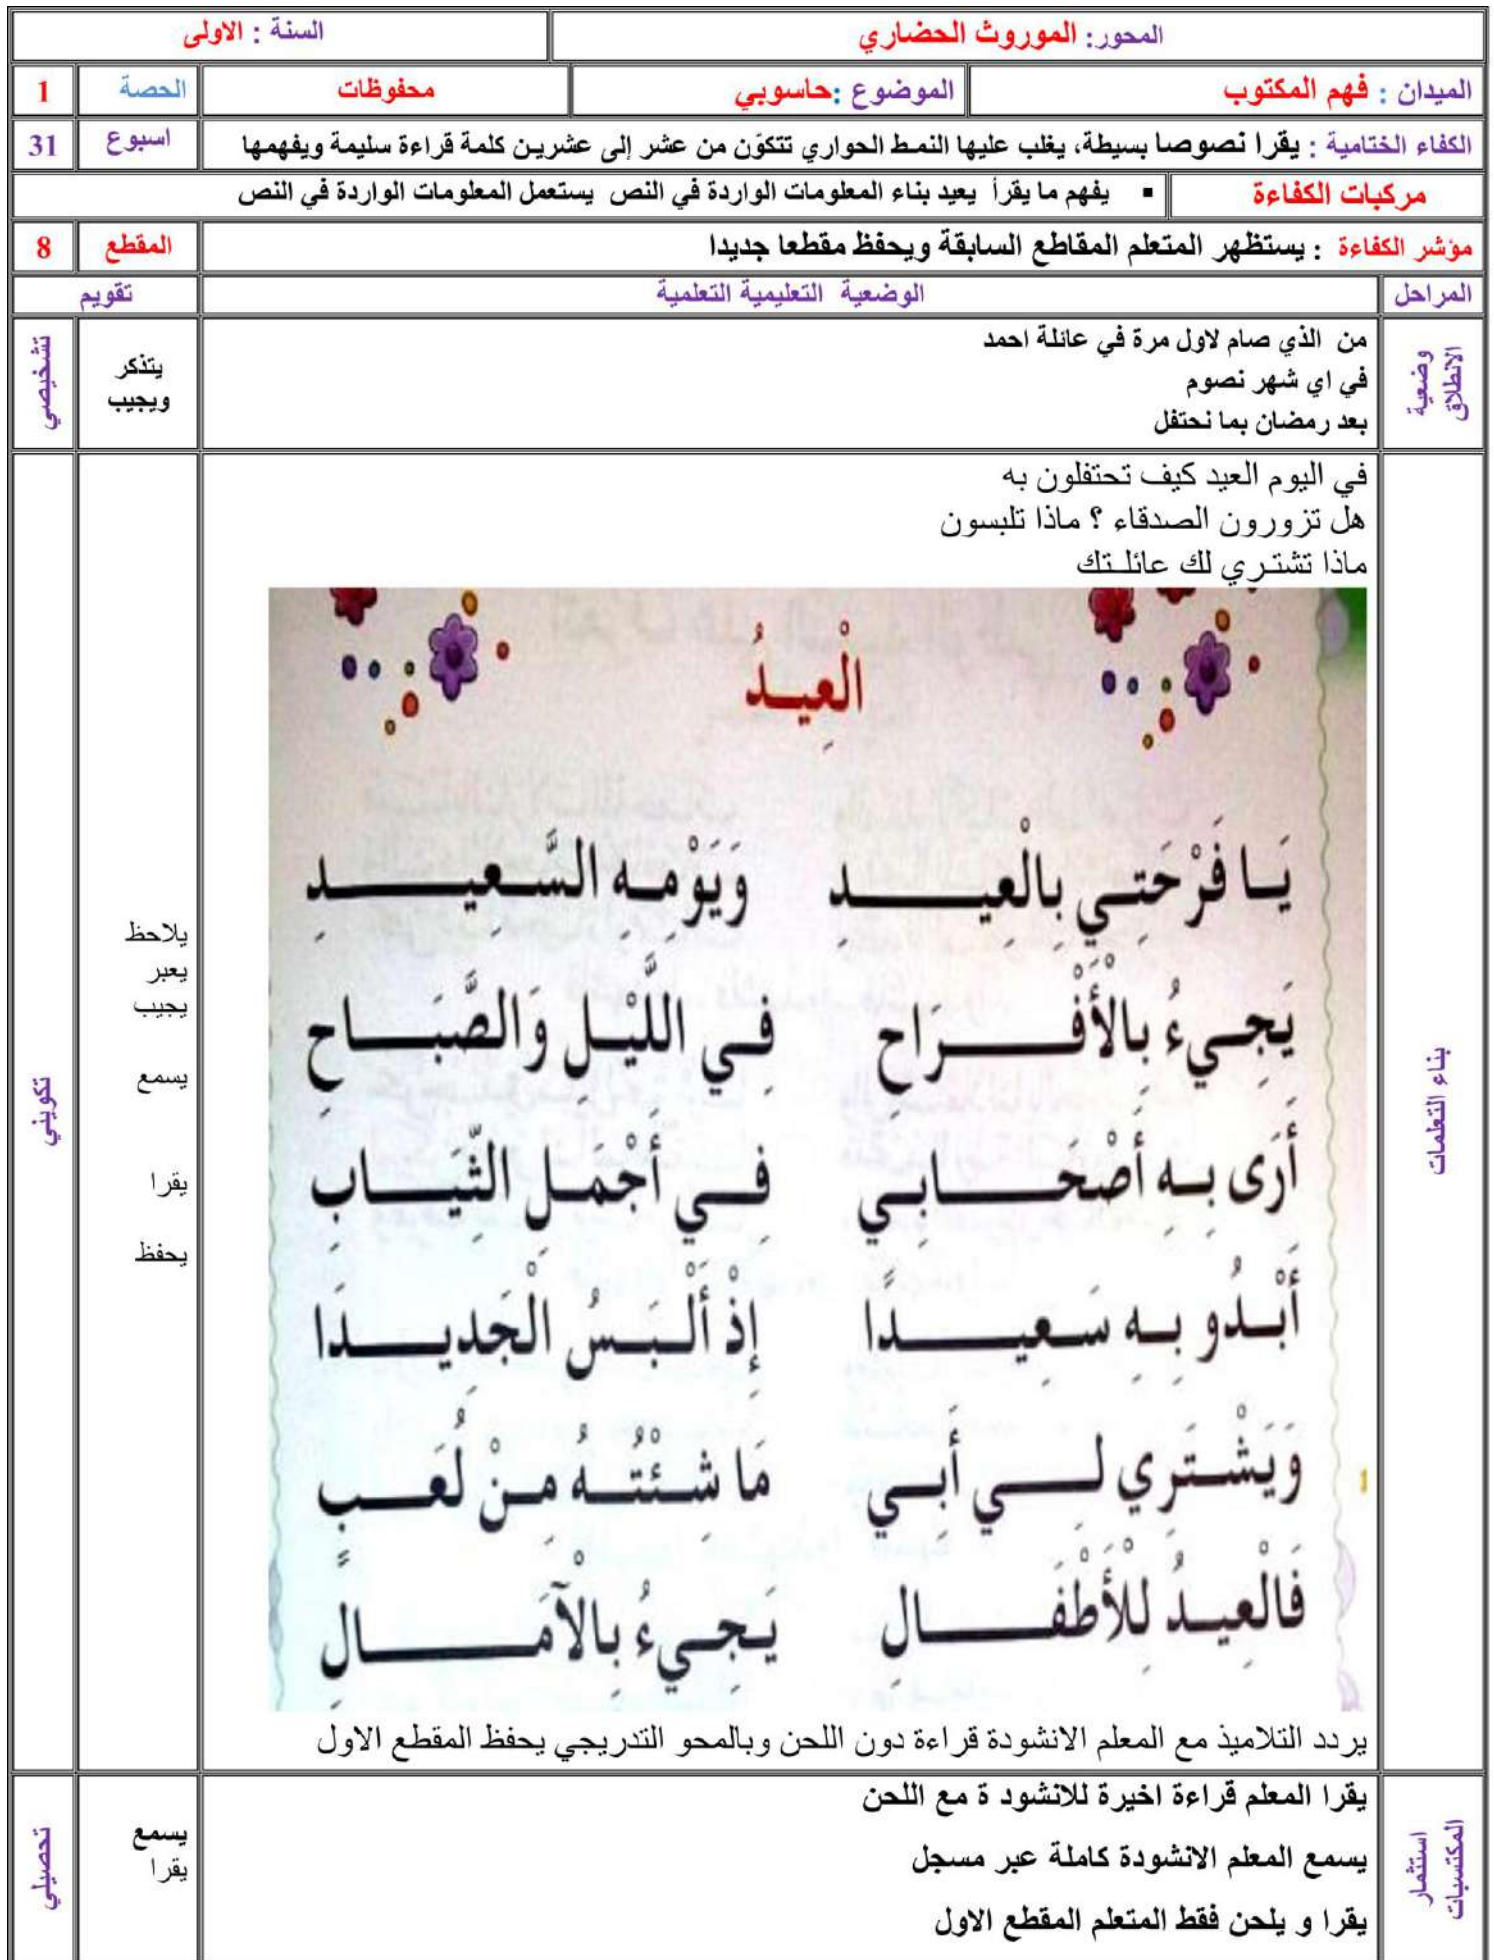 المحور: الموروث الحضاري
السنة : الاولى
الميدان : فهم المكتوب
الموضوع :حاسوبي
محفوظات
الحصة
1
الكفاء الختامية : يقرا نصوصا بسيطة، يغلب عليها النمط الحواري تتكوّن من عشر إلى عشرين كلمة قراءة سليمة ويفهمها
اسبوع
31
مركبات الكفاءة
▪ يفهم ما يقرأ يعيد بناء المعلومات الواردة في النص يستعمل المعلومات الواردة في النص
مؤشر الكفاءة : يستظهر المتعلم المقاطع السابقة ويحفظ مقطعا جديدا
المقطع
8
المراحل
الوضعية التعليمية التعلمية
تقويم
وضعية
الانطلاق
من الذي صام لاول مرة في عائلة احمد
في اي شهر نصوم
بعد رمضان بما نحتفل
يتذكر
ويجيب
تشخيصي
بناء التعلمات
في اليوم العيد كيف تحتفلون به
هل تزورون الصدقاء ؟ ماذا تلبسون
ماذا تشتري لك عائلتك
الْعِيدُ
يَا فَرْحَتِي بِالْعِيدِ وَيَوْمِهِ السَّعِيدِ
يَجِيءُ بِالْأَفْرَاحِ فِي اللَّيْلِ وَالصَّبَاحِ
أَرَى بِهِ أَصْحَابِي فِي أَجْمَلِ الثِّيَابِ
أَبْدُو بِهِ سَعِيدًا إِذْ أَلْبَسُ الْجَدِيدَا
وَيَشْتَرِي لِي أَبِي مَا شِئْتُهُ مِنْ لُعَبٍ
فَالْعِيدُ لِلْأَطْفَالِ يَجِيءُ بِالْآمَالِ
يردد التلاميذ مع المعلم الانشودة قراءة دون اللحن وبالمحو التدريجي يحفظ المقطع الاول
يلاحظ
يعبر
يجيب
يسمع
يقرا
يحفظ
تكويني
استثمار
المكتسبات
يقرا المعلم قراءة اخيرة للانشود ة مع اللحن
يسمع المعلم الانشودة كاملة عبر مسجل
يقرا و يلحن فقط المتعلم المقطع الاول
يسمع
يقرا
تحصيلي